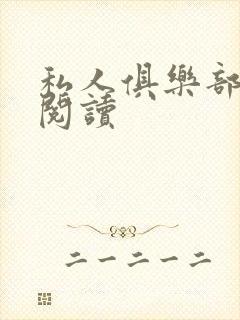 私人俱樂部
閱讀
二一二一二